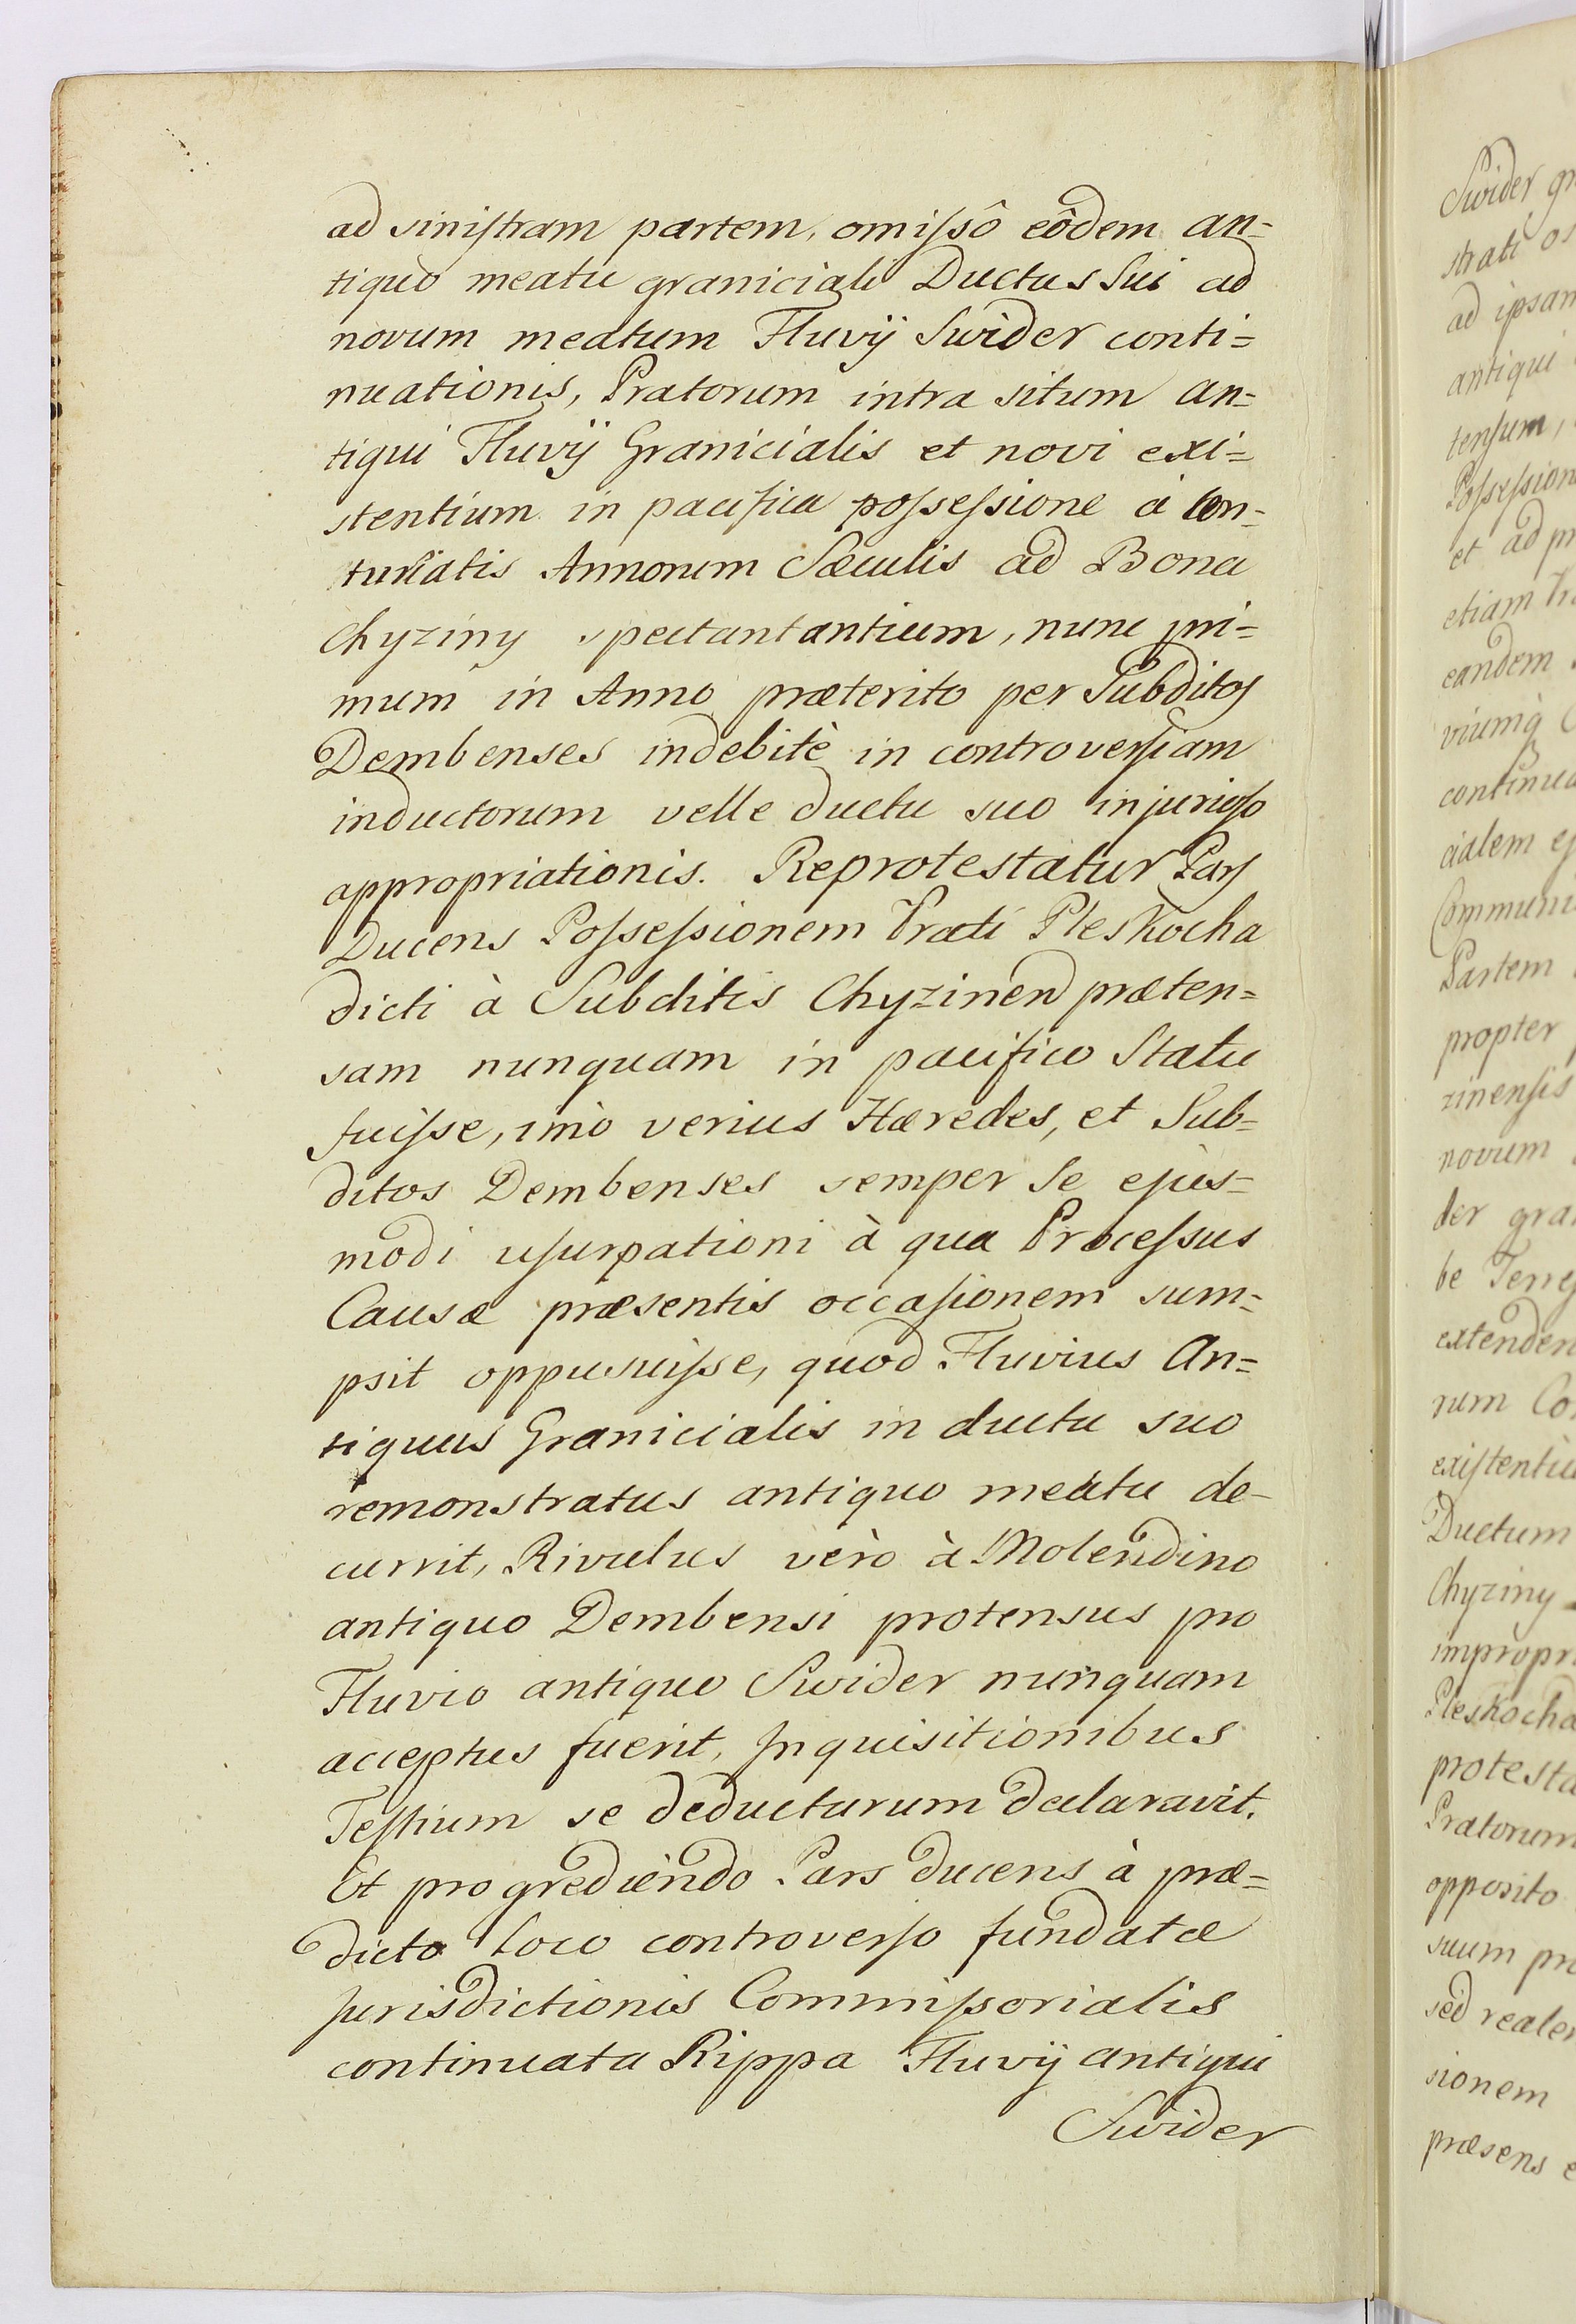 ad sinistram partem, omissô eôdem an=
tiquo meatu graniciali Ductus Sui ad
novum meatum Fluvij Swider conti=
nuationis, Pratorum intra situm an=
tiqui Fluvij Granicialis et novi exi=
stentium in pacifica possessione à Cen=
turiatis Annorum Sæculis ad Bona
Chyziny spectantantium, nunc pri=
mum in Anno præterito per Subditos
Dembenses indebitè in controversiam
inductorum velle ductu suo injurioso
appropriationis. Reprotestatur Pars
Ducens Possessionem Prati Pleskocha
dicti à Subditis Chyzinen præten=
sam nunquam in pacifico Statu
fuisse, imò verius Hæredes, et Sub=
ditos Dembenses semper se ejus=
modi usurpationi à qua Processus
Causæ præsentis occasionem sum=
psit oppusuisse, quod Fluvius An=
tiquus Granicialis in ductu suo
remonstratus antiquo meatu de-
currit, Rivulus verò à Molendino
antiquo Dembensi protensus pro
Fluvio antiquo Swider nunquam
acceptus fuerit, Inquisitionibus
Testium se deducturum declaravit.
Et progrediendo Pars ducens à præ=
dicto loco controverso fundatæ
Jurisdictionis Commissorialis
continuata Rippa Fluvij antiqui
Swider
Swider
ad ipsam
antiqui
tensum,
et ad
etiam
eandem
Partem
propter
zinensis
novum
der
extenden
rum
Ductum
Chyziny
Pleskocha
Pratorum
opposito
suum
sed
sionem
præsens